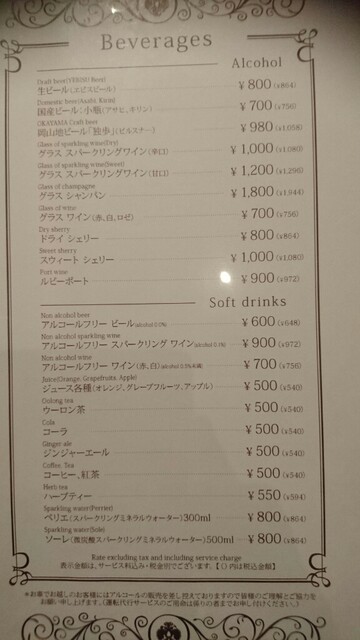 Beverages
Alcohol
Draft beer(YEBISU Beer)
生ビール(エビスビール) ¥800(¥864)
Domestic beer(Asahi, Kirin)
国産ビール：小瓶(アサヒ、キリン) ¥700(¥756)
OKAYAMA Craft beer
岡山地ビール「独歩」(ピルスナー) ¥980(¥1,058)
Glass of sparkling wine(Dry)
グラス スパークリングワイン(辛口) ¥1,000(¥1,080)
Glass of sparkling wine(Sweet)
グラス スパークリングワイン(甘口) ¥1,200(¥1,296)
Glass of champagne
グラス シャンパン ¥1,800(¥1,944)
Glass of wine
グラス ワイン(赤、白、ロゼ) ¥700(¥756)
Dry sherry
ドライ シェリー ¥800(¥864)
Sweet sherry
スウィート シェリー ¥1,000(¥1,080)
Port wine
ルビーポート ¥900(¥972)
Soft drinks
Non alcohol beer
アルコールフリー ビール alcohol 0.0% ¥600(¥648)
Non alcohol sparkling wine
アルコールフリー スパークリング ワイン ¥900(¥972)
Non alcohol wine
アルコールフリー ワイン(赤、白) ¥700(¥756)
Juice(Orange, Grapefruits, Apple)
ジュース各種(オレンジ、グレープフルーツ、アップル) ¥500(¥540)
Oolong tea
ウーロン茶 ¥500(¥540)
Cola
コーラ ¥500(¥540)
Ginger ale
ジンジャーエール ¥500(¥540)
Coffee, Tea
コーヒー、紅茶 ¥500(¥540)
Herb tea
ハーブティー ¥550(¥594)
Sparkling water(Perrier)
ペリエ(炭酸スパークリングミネラルウォーター)300ml ¥800(¥864)
Sparkling water(Sole)
ソーレ(微炭酸スパークリングミネラルウォーター)500ml ¥800(¥864)
Rate excluding tax and including service charge
表示金額は、サービス料込み・税金別でございます。【()内は税込金額】
*お車でお越しのお客様にはアルコールの販売を差し控えておりますので皆様のご理解とご協力を
お願い申し上げます。(運転代行サービスのご用命は係りの者までお申し付けください。)